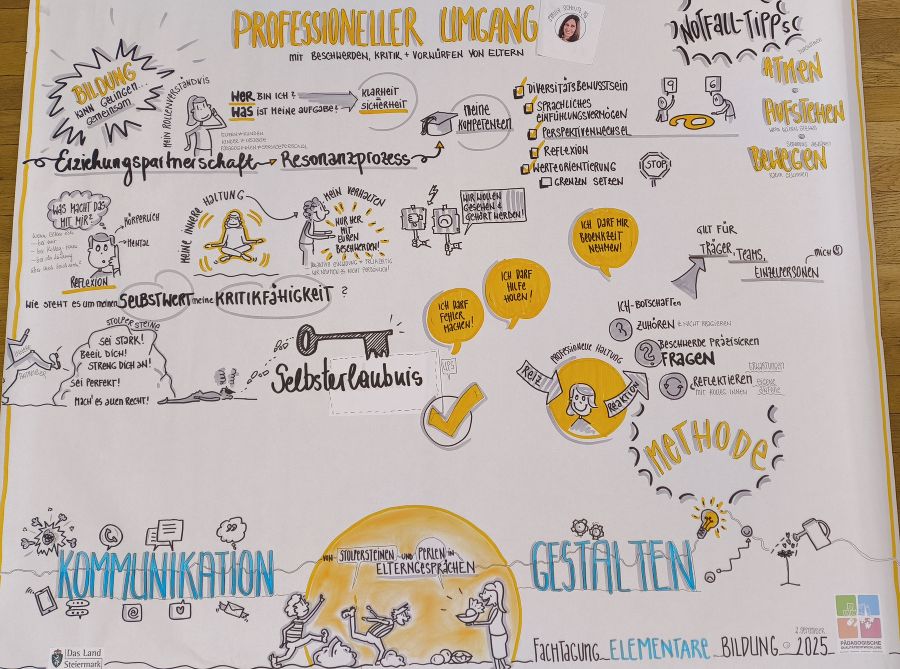 PROFESSIONELLER UMGANG
MIT BESCHWERDEN, KRITIK + VORWÜRFEN VON ELTERN
NOTFALL-TIPPS:
ATMEN
AUFSTEHEN
BEWEGEN
BILDUNG
KANN GELINGEN...
GEMEINSAM
MEIN ROLLENVERSTÄNDNIS
WER BIN ICH?
WAS IST MEINE AUFGABE?
KLARHEIT
SICHERHEIT
Erziehungspartnerschaft
RESONANZPROZESS
MEINE
KOMPETENZEN
DIVERSITÄTSBEWUSSTSEIN
SPRACHLICHES
EINFÜHLUNGSVERMÖGEN
PERSPEKTIVENWECHSEL
REFLEXION
WERTEORIENTIERUNG
GRENZEN SETZEN
9
6
STOP
WAS MACHT DAS
MIT MIR?
KÖRPERLICH
MENTAL
REFLEXION
MEINE INNERE HALTUNG
MEIN VERHALTEN
NUR HER
MIT
EUREN
BESCHWERDEN!
WIR WOLLEN
GESEHEN &
GEHÖRT WERDEN!
WIE STEHT ES UM MEINEN SELBSTWERT MEINE KRITIKFÄHIGKEIT ?
ICH DARF
FEHLER
MACHEN!
ICH DARF
HILFE
HOLEN!
ICH DARF MIR
BEDENKZEIT
NEHMEN!
GILT FÜR
TRÄGER, TEAMS,
EINZELPERSONEN
MICH
STOLPERSTEINE
SEI STARK!
BEEIL DICH!
STRENG DICH AN!
SEI PERFEKT!
MACH' ES ALLEN RECHT!
Selbsterlaubnis
PROFESSIONELLE HALTUNG
REIZ
REAKTION
ICH-BOTSCHAFTEN
3 ZUHÖREN & NICHT REAGIEREN
2 BESCHWERDE PRÄZISIEREN
FRAGEN
REFLEKTIEREN
ERWARTUNGEN
EIGENE
ANTEILE
METHODE
KOMMUNIKATION
VON STOLPERSTEINEN UND PERLEN IN
ELTERNGESPRÄCHEN
GESTALTEN
FACHTAGUNG ELEMENTARE BILDUNG
2. SEPTEMBER
2025
Das Land
Steiermark
PÄDAGOGISCHE
QUALITÄTSENTWICKLUNG